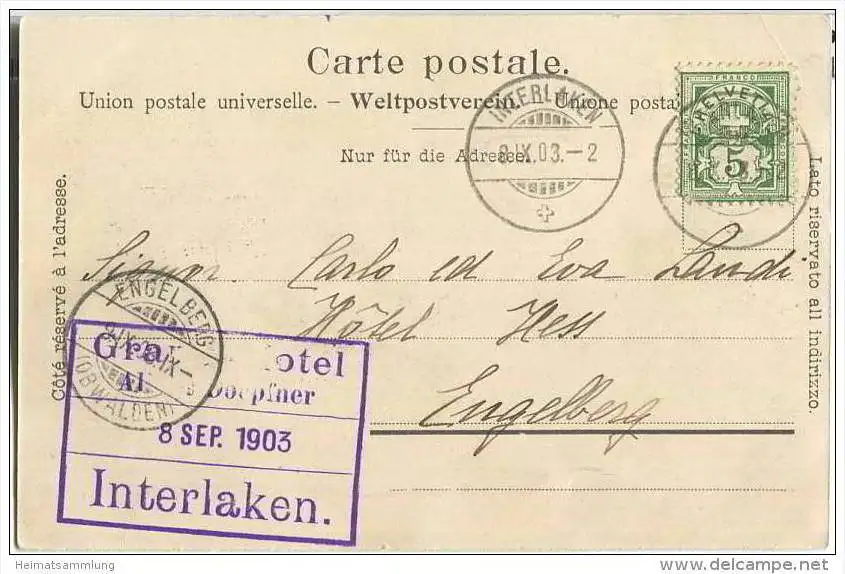 Carte postale.
Union postale universelle. – Weltpostverein. – Unione posta
Nur für die Adresse.
INTERLAKEN
8.IX.03.–2
FRANCO
HELVETIA
5
Côté réservé à l'adresse.
Lato riservato all indirizzo.
Carlo ed Eva Landi
Hôtel Hess
Engelberg
ENGELBERG
(OBWALDEN)
Gra otel
Al Doepfner
8 SEP. 1903
Interlaken.
Heimatsammlung
delcampe.net